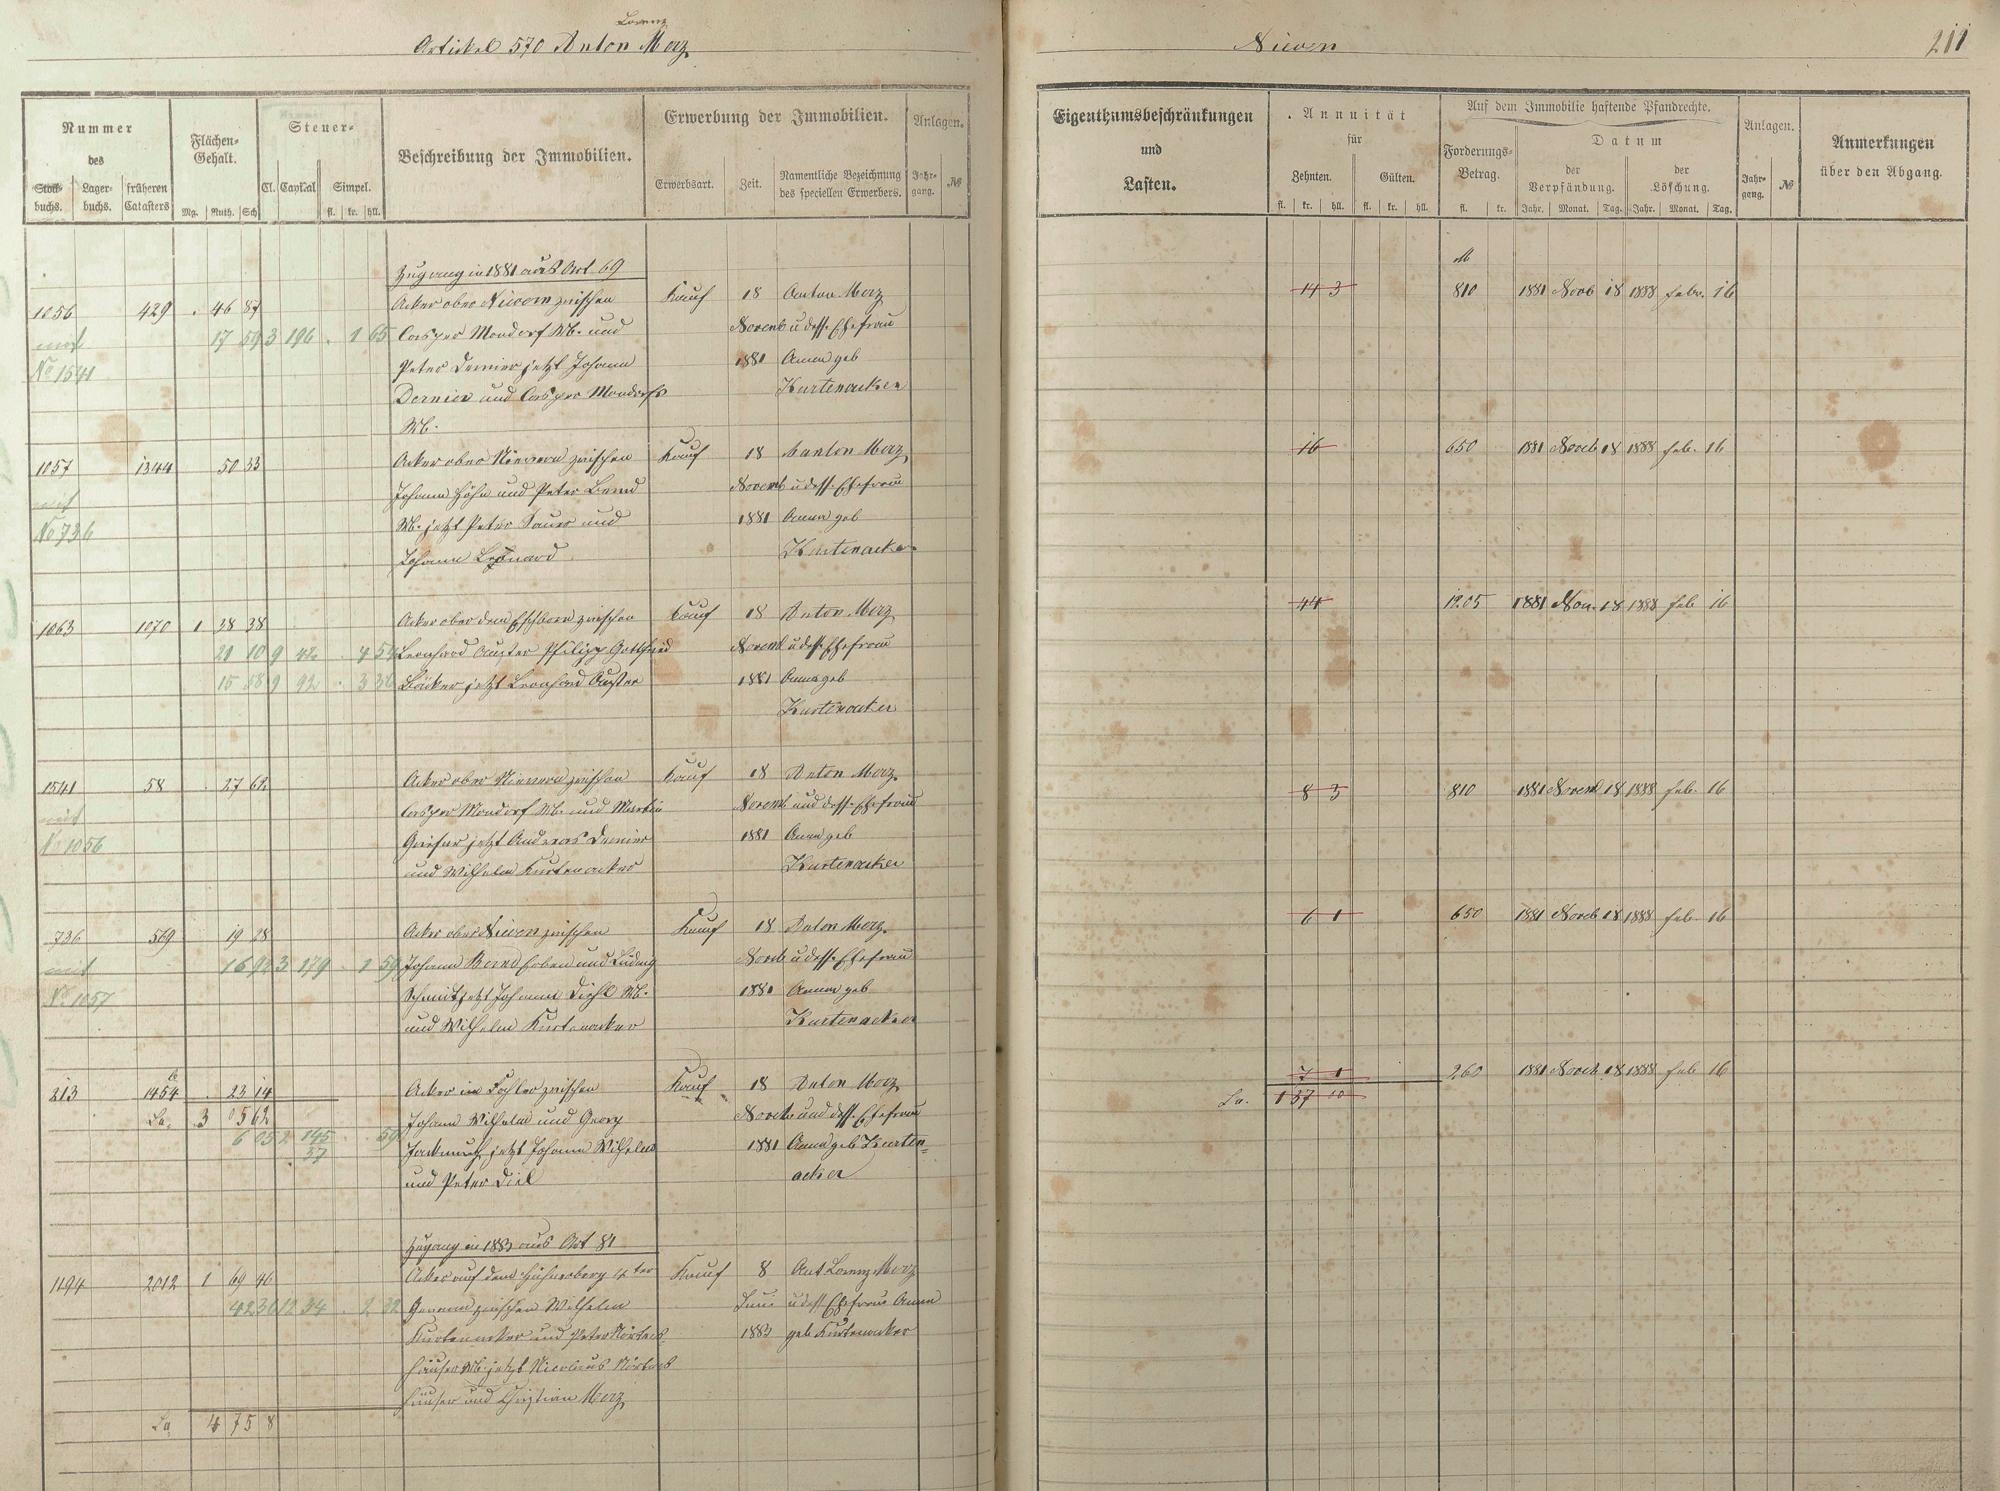 Lorenz
Artickel 570 Anton Merz
Nummer
des
Stock-
buchs.
Lager-
buchs.
früheren
Catasters
Flächen-
Gehalt.
Mg. Ruth. Sch
Steuer-
Cl. Capital Simpel.
fl. kr. hll.
Beschreibung der Immobilien.
Erwerbung der Immobilien.
Erwerbsart. Zeit.
Namentliche Bezeichnung
des speciellen Erwerbers.
Anlagen.
Jahr-
gang. №
Zugang in 1881 aus Art 69
1056 429 . 46 87 Acker ober Nievern zwischen Kauf 18 Anton Merz
mit 17 59 3 196 . 1 65 Casper Mondorf Wb. und Novemb u dess. Ehefrau
No 1541 Peter Dernier jetzt Johann 1881 Anna geb
Dernier und Casper Mondorfs Kurtenacker
Wb.
1057 1344 50 33 Acker ober Nievern zwischen Kauf 18 Anton Merz
mit Johann Höhn und Peter Novemb u dess. Ehefrau
No 736 Wb. jetzt Peter Sauer und 1881 Anna geb
Johann Leonard Kurtenacker
1063 1070 1 28 38 Acker ober dem Eschborn zwischen Kauf 18 Anton Merz
21 10 9 42 . 4 54 Leonhard Auster Philipp Gottfried Novemb u dess Ehefrau
15 58 9 92 . 3 36 Bäcker jetzt Leonhard Auster 1881 Anna geb
Kurtenacker
1541 58 . 27 62 Acker ober Nievern zwischen Kauf 18 Anton Merz
mit Casper Mondorf Wb. und Martin Novemb und dess. Ehefrau
No 1056 jetzt Andreas Dernier 1881 Anna geb
und Wilhelm Kurtenacker Kurtenacker
736 569 19 28 Acker ober Nievern zwischen Kauf 18 Anton Merz
mit 16 92 3 179 . 1 59 Johann Erben und Ludwig Novb u dess. Ehefrau
No 1057 Schmit jetzt Johann Diehl Wb. 1881 Anna geb
und Wilhelm Kurtenacker Kurtenacker
213 1454 . 23 14 Acker im zwischen Kauf 18 Anton Merz
La. 3 0562 Johann Wilhelm und Georg Novemb und dess. Ehefrau
6 05 2 145 59 jetzt Johann Wilhelm 1881 Anna geb Kurten=
37 und Peter Diel acker
Zugang in 1883 aus Art 81
1194 2012 1 69 46 Acker auf dem Hühnerberg 4ter Kauf 8 Ant Lorenz Merz
42 36 12 34 . 2 32 Gewann zwischen Wilhelm Juni u dess Ehefrau Anna
Kurtenacker und Peter 1883 geb Kurtenacker
häuser Wb. jetzt Nicolaus
häuser und Christian Merz
La 4 75 8
Nievern
211
Eigenthumsbeschränkungen
und
Lasten.
Annuität
für
Zehnten. Gülten.
fl. kr. hll. fl. kr. hll.
Auf dem Immobilie haftende Pfandrechte.
Forderungs-
Betrag.
fl. kr.
Datum
der
Verpfändung.
der
Löschung.
Jahr. Monat. Tag. Jahr. Monat. Tag.
Anlagen.
Jahr-
gang. №
Anmerkungen
über den Abgang.
M
14 3 810 1881 Novb 18 1888 febr. 16
16 650 1881 Novb 18 1888 feb. 16
44 1205 1881 Nov. 18 1888 feb 16
8 3 810 1881 Novemb 18 1888 feb. 16
6 1 650 1881 Novb 18 1888 feb. 16
7 1 260 1881 Novb. 18 1888 feb 16
La. 1 37 10